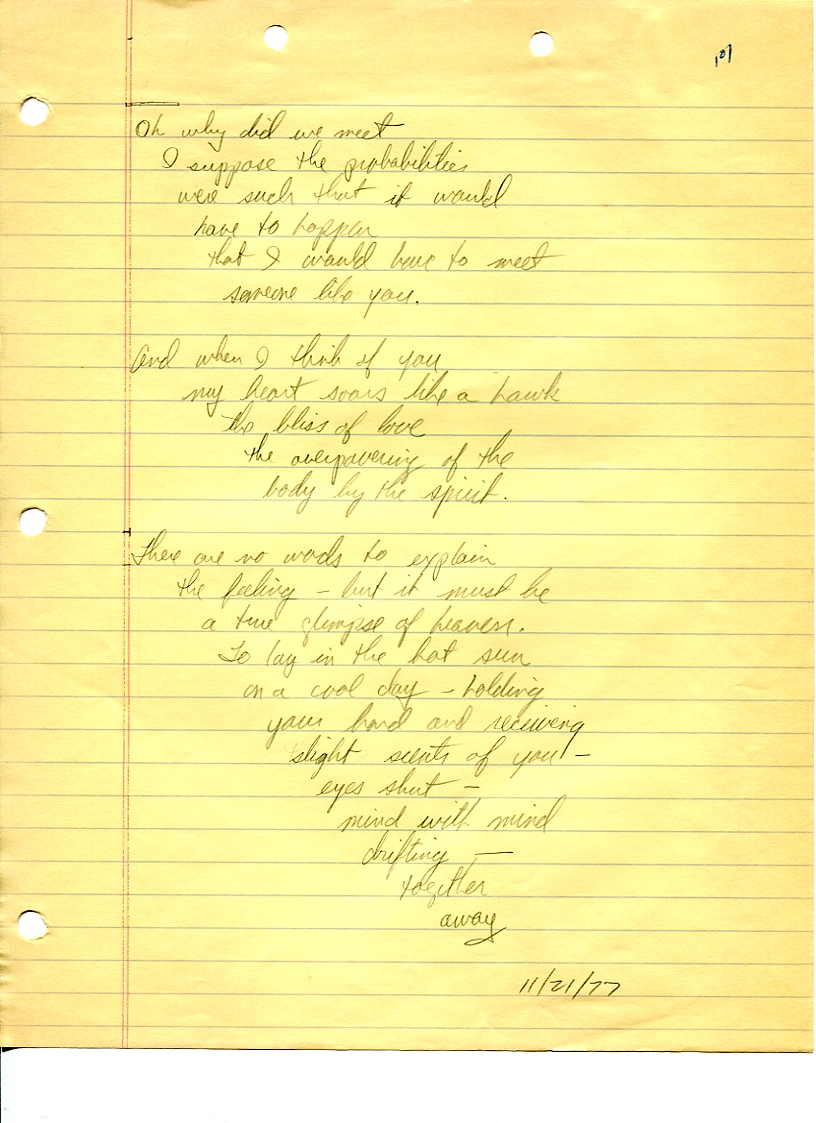 101
Oh why did we meet
I suppose the probabilities
were such that it would
have to happen
that I would have to meet
someone like you.
And when I think of you
my heart soars like a hawk
the bliss of love
the overpowering of the
body by the spirit.
There are no words to explain
the feeling – but it must be
a true glimpse of heaven.
To lay in the hot sun
on a cool day – holding
your hand and receiving
slight scents of you –
eyes shut –
mind with mind
drifting —
together
away
11/21/77